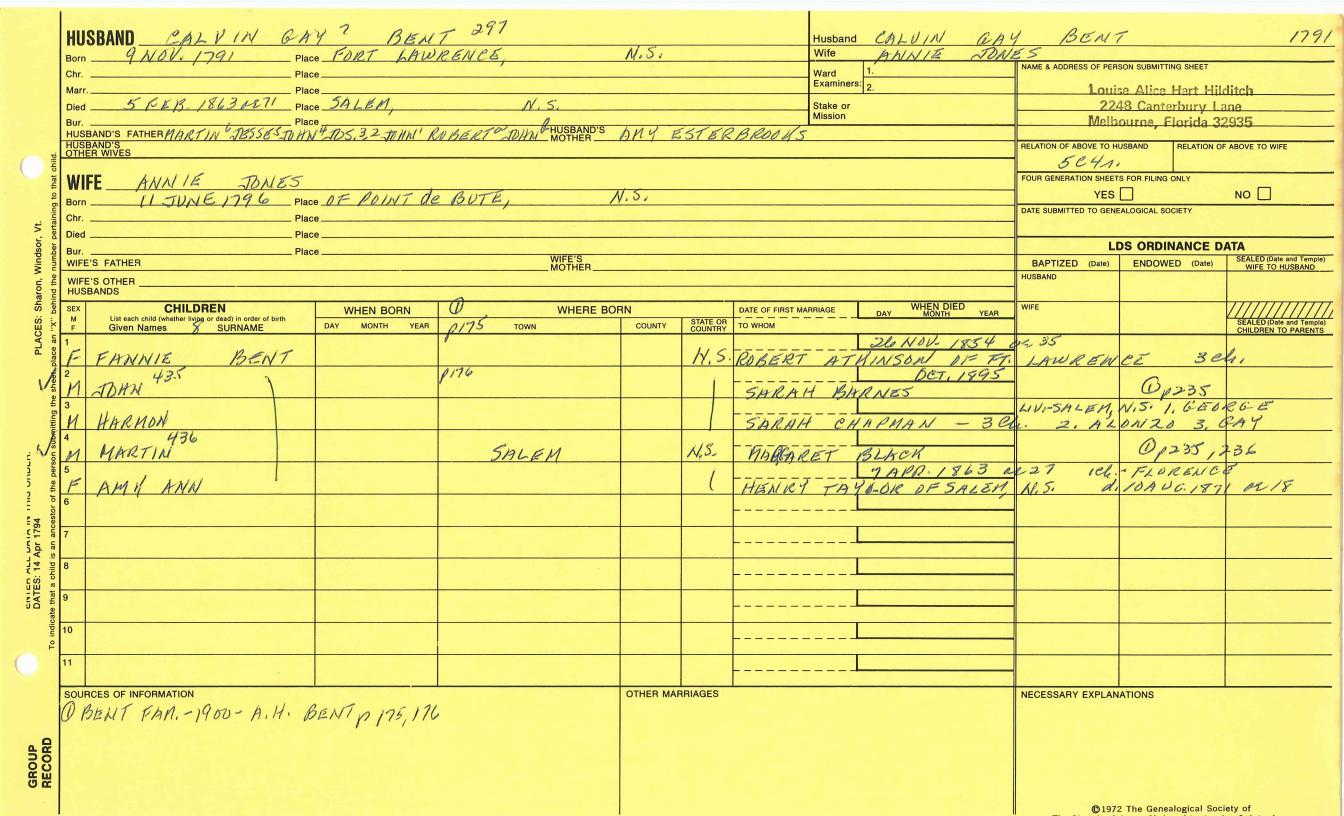 HUSBAND CALVIN GAY 7 BENT 297
Born 9 NOV. 1791 Place FORT LAWRENCE, N.S.
Chr. Place
Marr. Place
Died 5 FEB. 1863 æ71 Place SALEM, N.S.
Bur. Place
HUSBAND'S FATHER MARTIN 6 JESSE 5 JOHN 4 JOS. 3,2 JOHN 1 ROBERT a JOHN b HUSBAND'S MOTHER AMY ESTERBROOKS
HUSBAND'S OTHER WIVES
Husband CALVIN GAY BENT 1791
Wife ANNIE JONES
Ward Examiners: 1.
2.
Stake or Mission
NAME & ADDRESS OF PERSON SUBMITTING SHEET
Louise Alice Hart Hilditch
2248 Canterbury Lane
Melbourne, Florida 32935
RELATION OF ABOVE TO HUSBAND RELATION OF ABOVE TO WIFE
5C4r.
FOUR GENERATION SHEETS FOR FILING ONLY
YES NO
DATE SUBMITTED TO GENEALOGICAL SOCIETY
WIFE ANNIE JONES
Born 11 JUNE 1796 Place OF POINT de BUTE, N.S.
Chr. Place
Died Place
Bur. Place
WIFE'S FATHER WIFE'S MOTHER
WIFE'S OTHER HUSBANDS
LDS ORDINANCE DATA
BAPTIZED (Date) ENDOWED (Date) SEALED (Date and Temple) WIFE TO HUSBAND
HUSBAND
WIFE
SEALED (Date and Temple) CHILDREN TO PARENTS
SEX M F
CHILDREN
List each child (whether living or dead) in order of birth
Given Names 8 SURNAME
WHEN BORN
DAY MONTH YEAR
① WHERE BORN
p175 TOWN COUNTY STATE OR COUNTRY
DATE OF FIRST MARRIAGE
TO WHOM
WHEN DIED
DAY MONTH YEAR
1 26 NOV. 1854 æ 35
F FANNIE BENT N.S. ROBERT ATKINSON OF FT. LAWRENCE 3 ch.
2 435 p176 OCT. 1895
M JOHN SARAH BARNES ① p235
3 LIV.-SALEM, N.S. 1. GEORGE
M HARMON SARAH CHAPMAN - 3 ch. 2. ALONZO 3. GAY
4 436
M MARTIN SALEM N.S. MARGARET BLACK ① p235, 236
5 7 APR. 1863 æ 27 1ch.- FLORENCE
F AMY ANN HENRY TAYLOR OF SALEM, N.S. d. 10 AUG. 1871 æ 18
6
7
8
9
10
11
SOURCES OF INFORMATION
① BENT FAM.-1900- A.H. BENT p 175, 176
OTHER MARRIAGES
NECESSARY EXPLANATIONS
©1972 The Genealogical Society of
PLACES: Sharon, Windsor, Vt.
DATES: 14 Apr 1794
To indicate that a child is an ancestor of the person submitting the sheet, place an "X" behind the number pertaining to that child.
GROUP RECORD